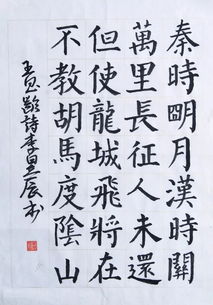 秦時明月漢時關
萬里長征人未還
但使龍城飛將在
不教胡馬度陰山
王昌齡詩李星辰书